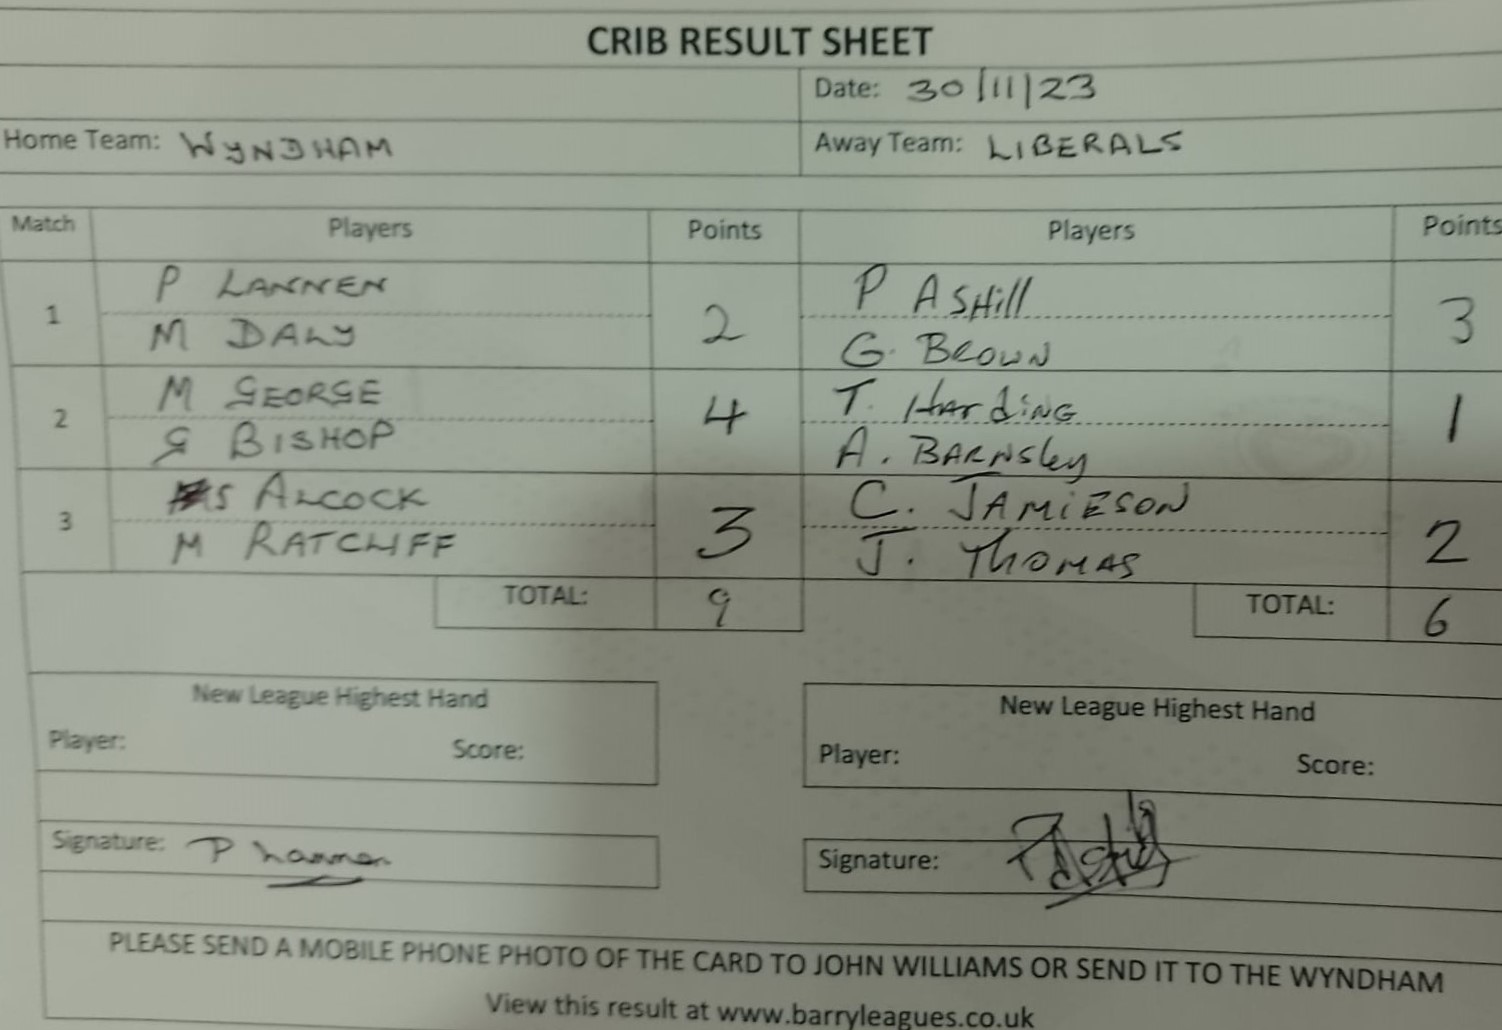 CRIB RESULT SHEET
Date: 30/11/23
Home Team: WYNDHAM Away Team: LIBERALS
Match Players Points Players Points
1 P LANNEN 2 P ASHill 3
M DALY G. BROWN
2 M GEORGE 4 T. HARdiNG 1
G BISHOP A. BARNSley
3 S ALCOCK 3 C. JAMiESON 2
M RATCLIFF J. THOMAS
TOTAL: 9 TOTAL: 6
New League Highest Hand New League Highest Hand
Player: Score: Player: Score:
Signature: P Lannen Signature: P Ashill
PLEASE SEND A MOBILE PHONE PHOTO OF THE CARD TO JOHN WILLIAMS OR SEND IT TO THE WYNDHAM
View this result at www.barryleagues.co.uk